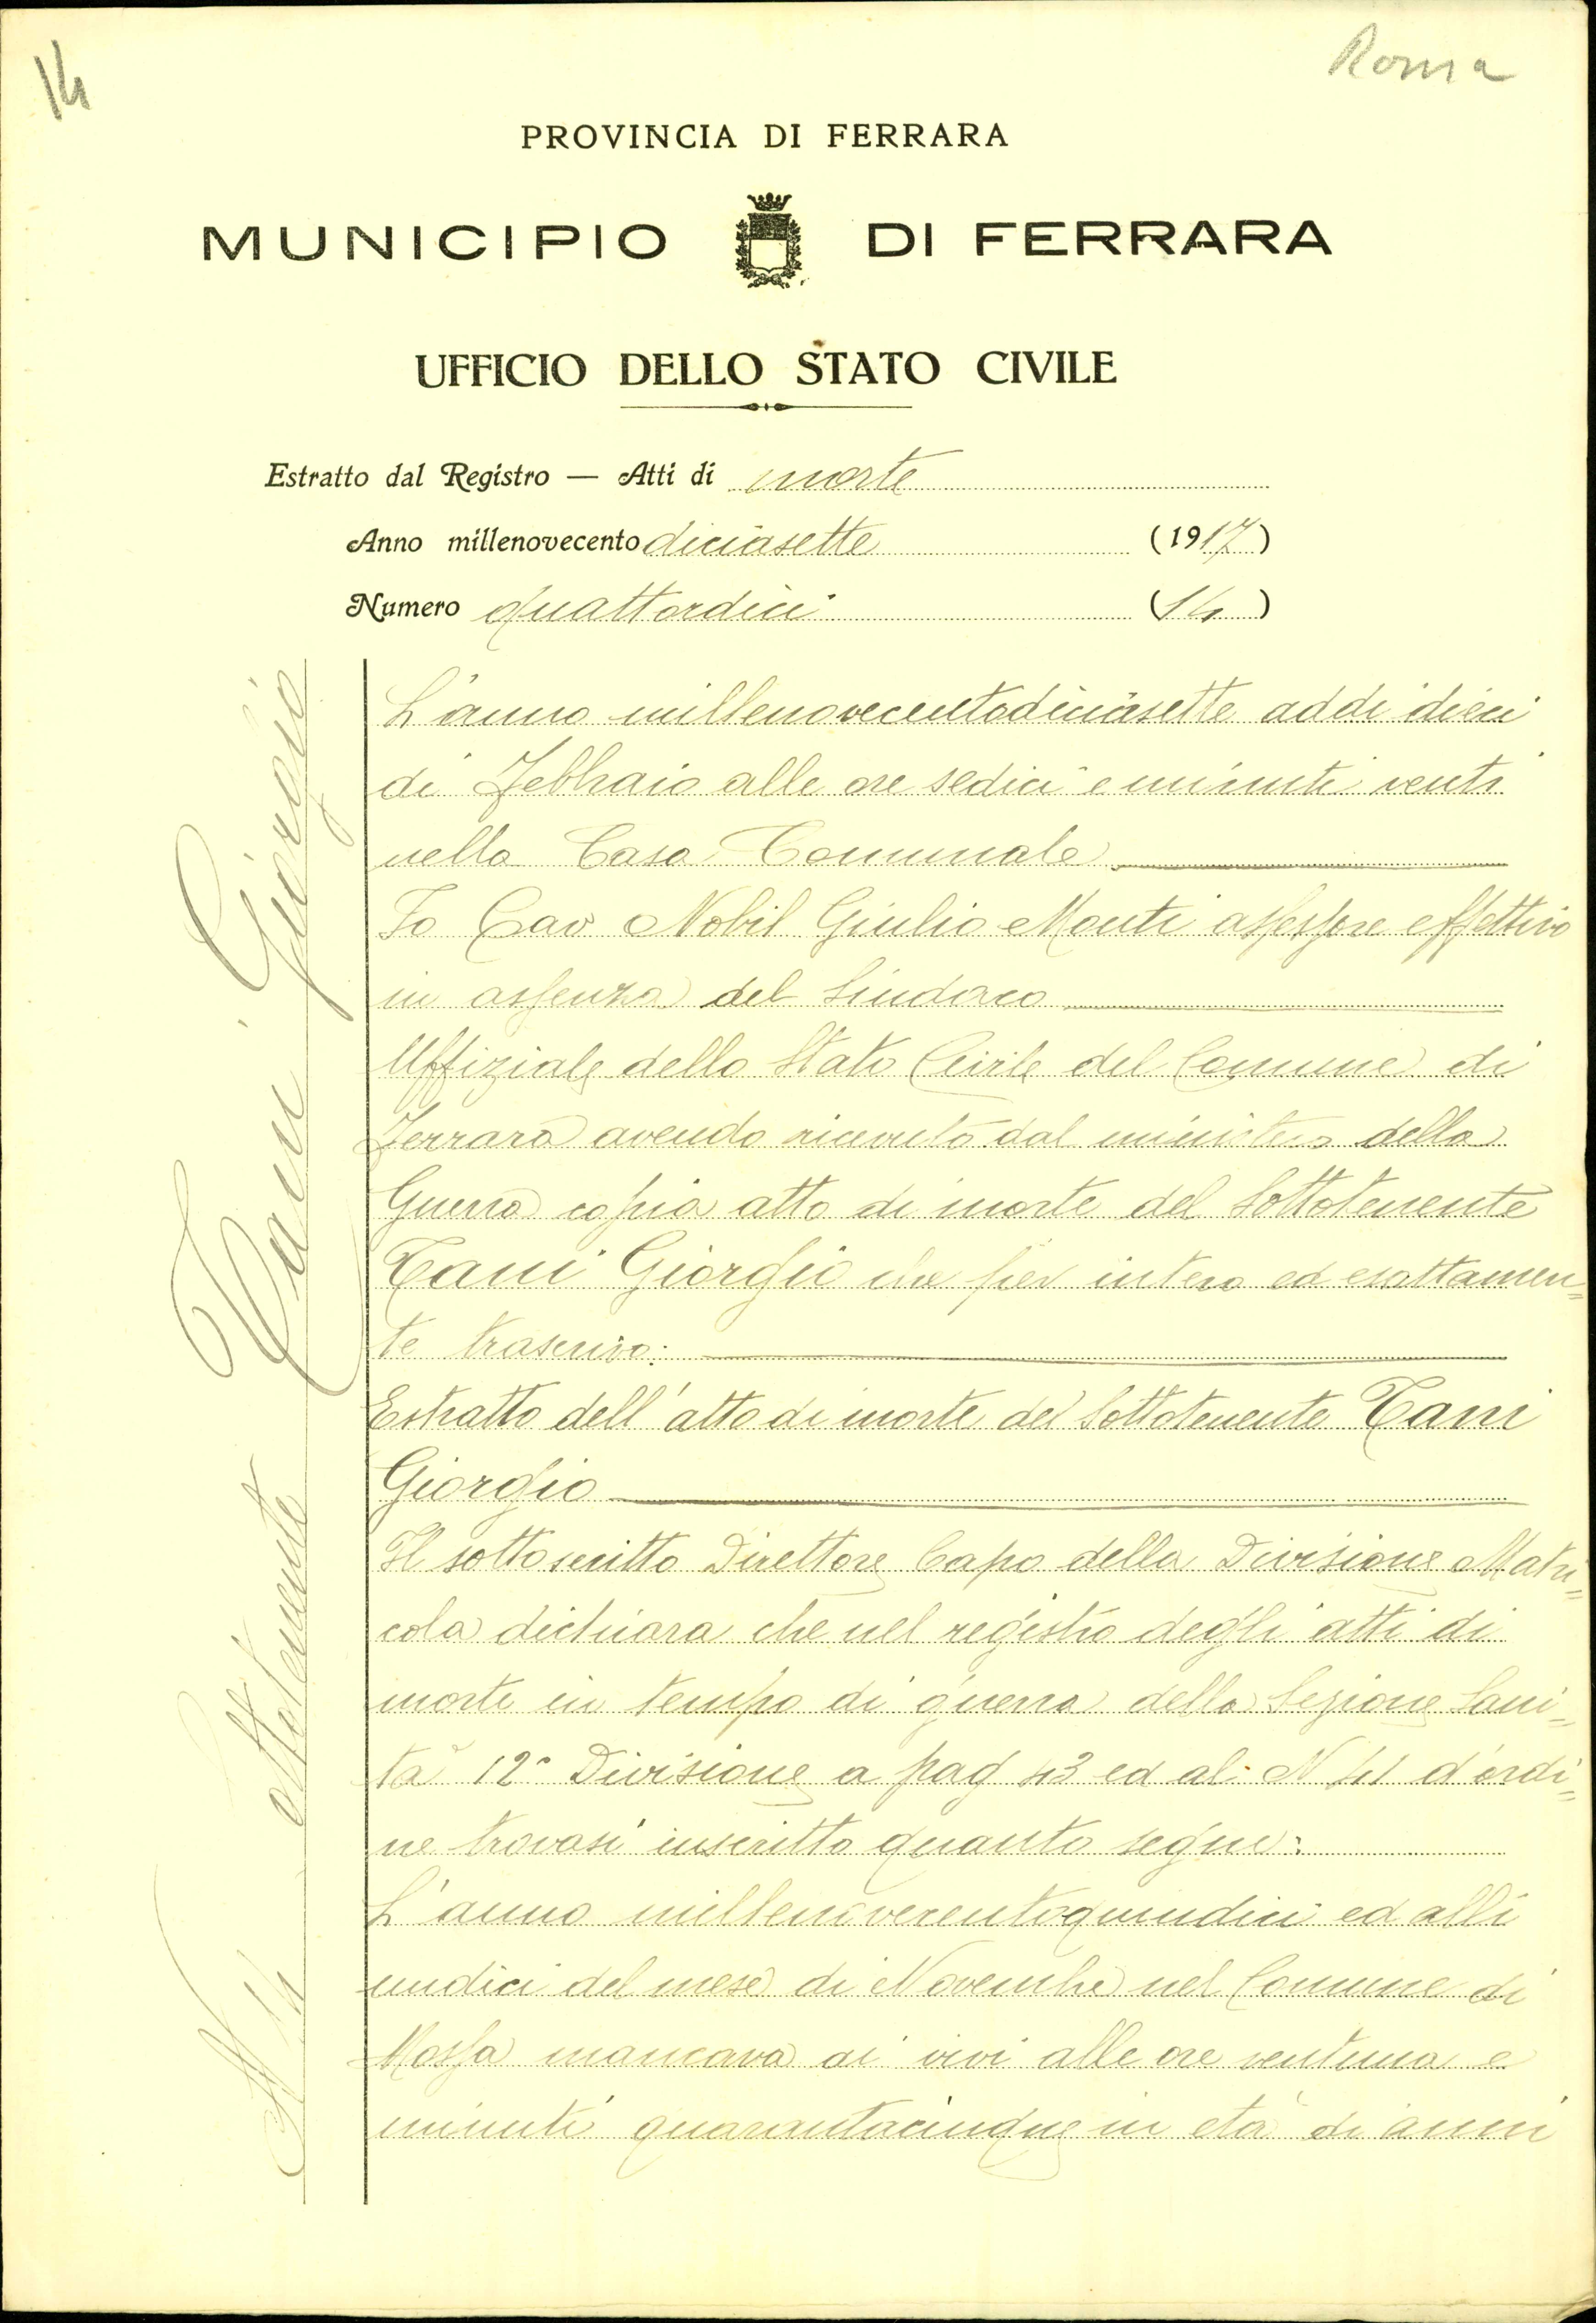 14
Roma
PROVINCIA DI FERRARA
MUNICIPIO DI FERRARA
UFFICIO DELLO STATO CIVILE
Estratto dal Registro — Atti di morte
Anno millenovecento diciasette (1917)
Numero quattordici (14)
L'anno millenovecentodiciasette addì dieci
di Febbraio alle ore sedici e minuti venti
nella Casa Comunale
Io Cav Nobil Giulio Monti assessore effettivo
in assenza del Sindaco
Uffiziale dello Stato Civile del Comune di
Ferrara avendo ricevuto dal ministero della
Guerra copia atto di morte del Sottotenente
Tani Giorgio che per intero ed esattamen=
te trascrivo:
Estratto dell'atto di morte del Sottotenente Tani
Giorgio
Il sottoscritto Direttore Capo della Divisione Matri=
cola dichiara che nel registro degli atti di
morte in tempo di guerra della Sezione Sani=
tà 12ª Divisione a pag 43 ed al N 41 d'ordi=
ne trovasi inscritto quanto segue:
L'anno millenovecentoquindici ed alli
undici del mese di Novembre nel Comune di
Mossa mancava ai vivi alle ore ventuna e
minuti quarantacinque in età di anni
N 14 sottotenente Tani Giorgio